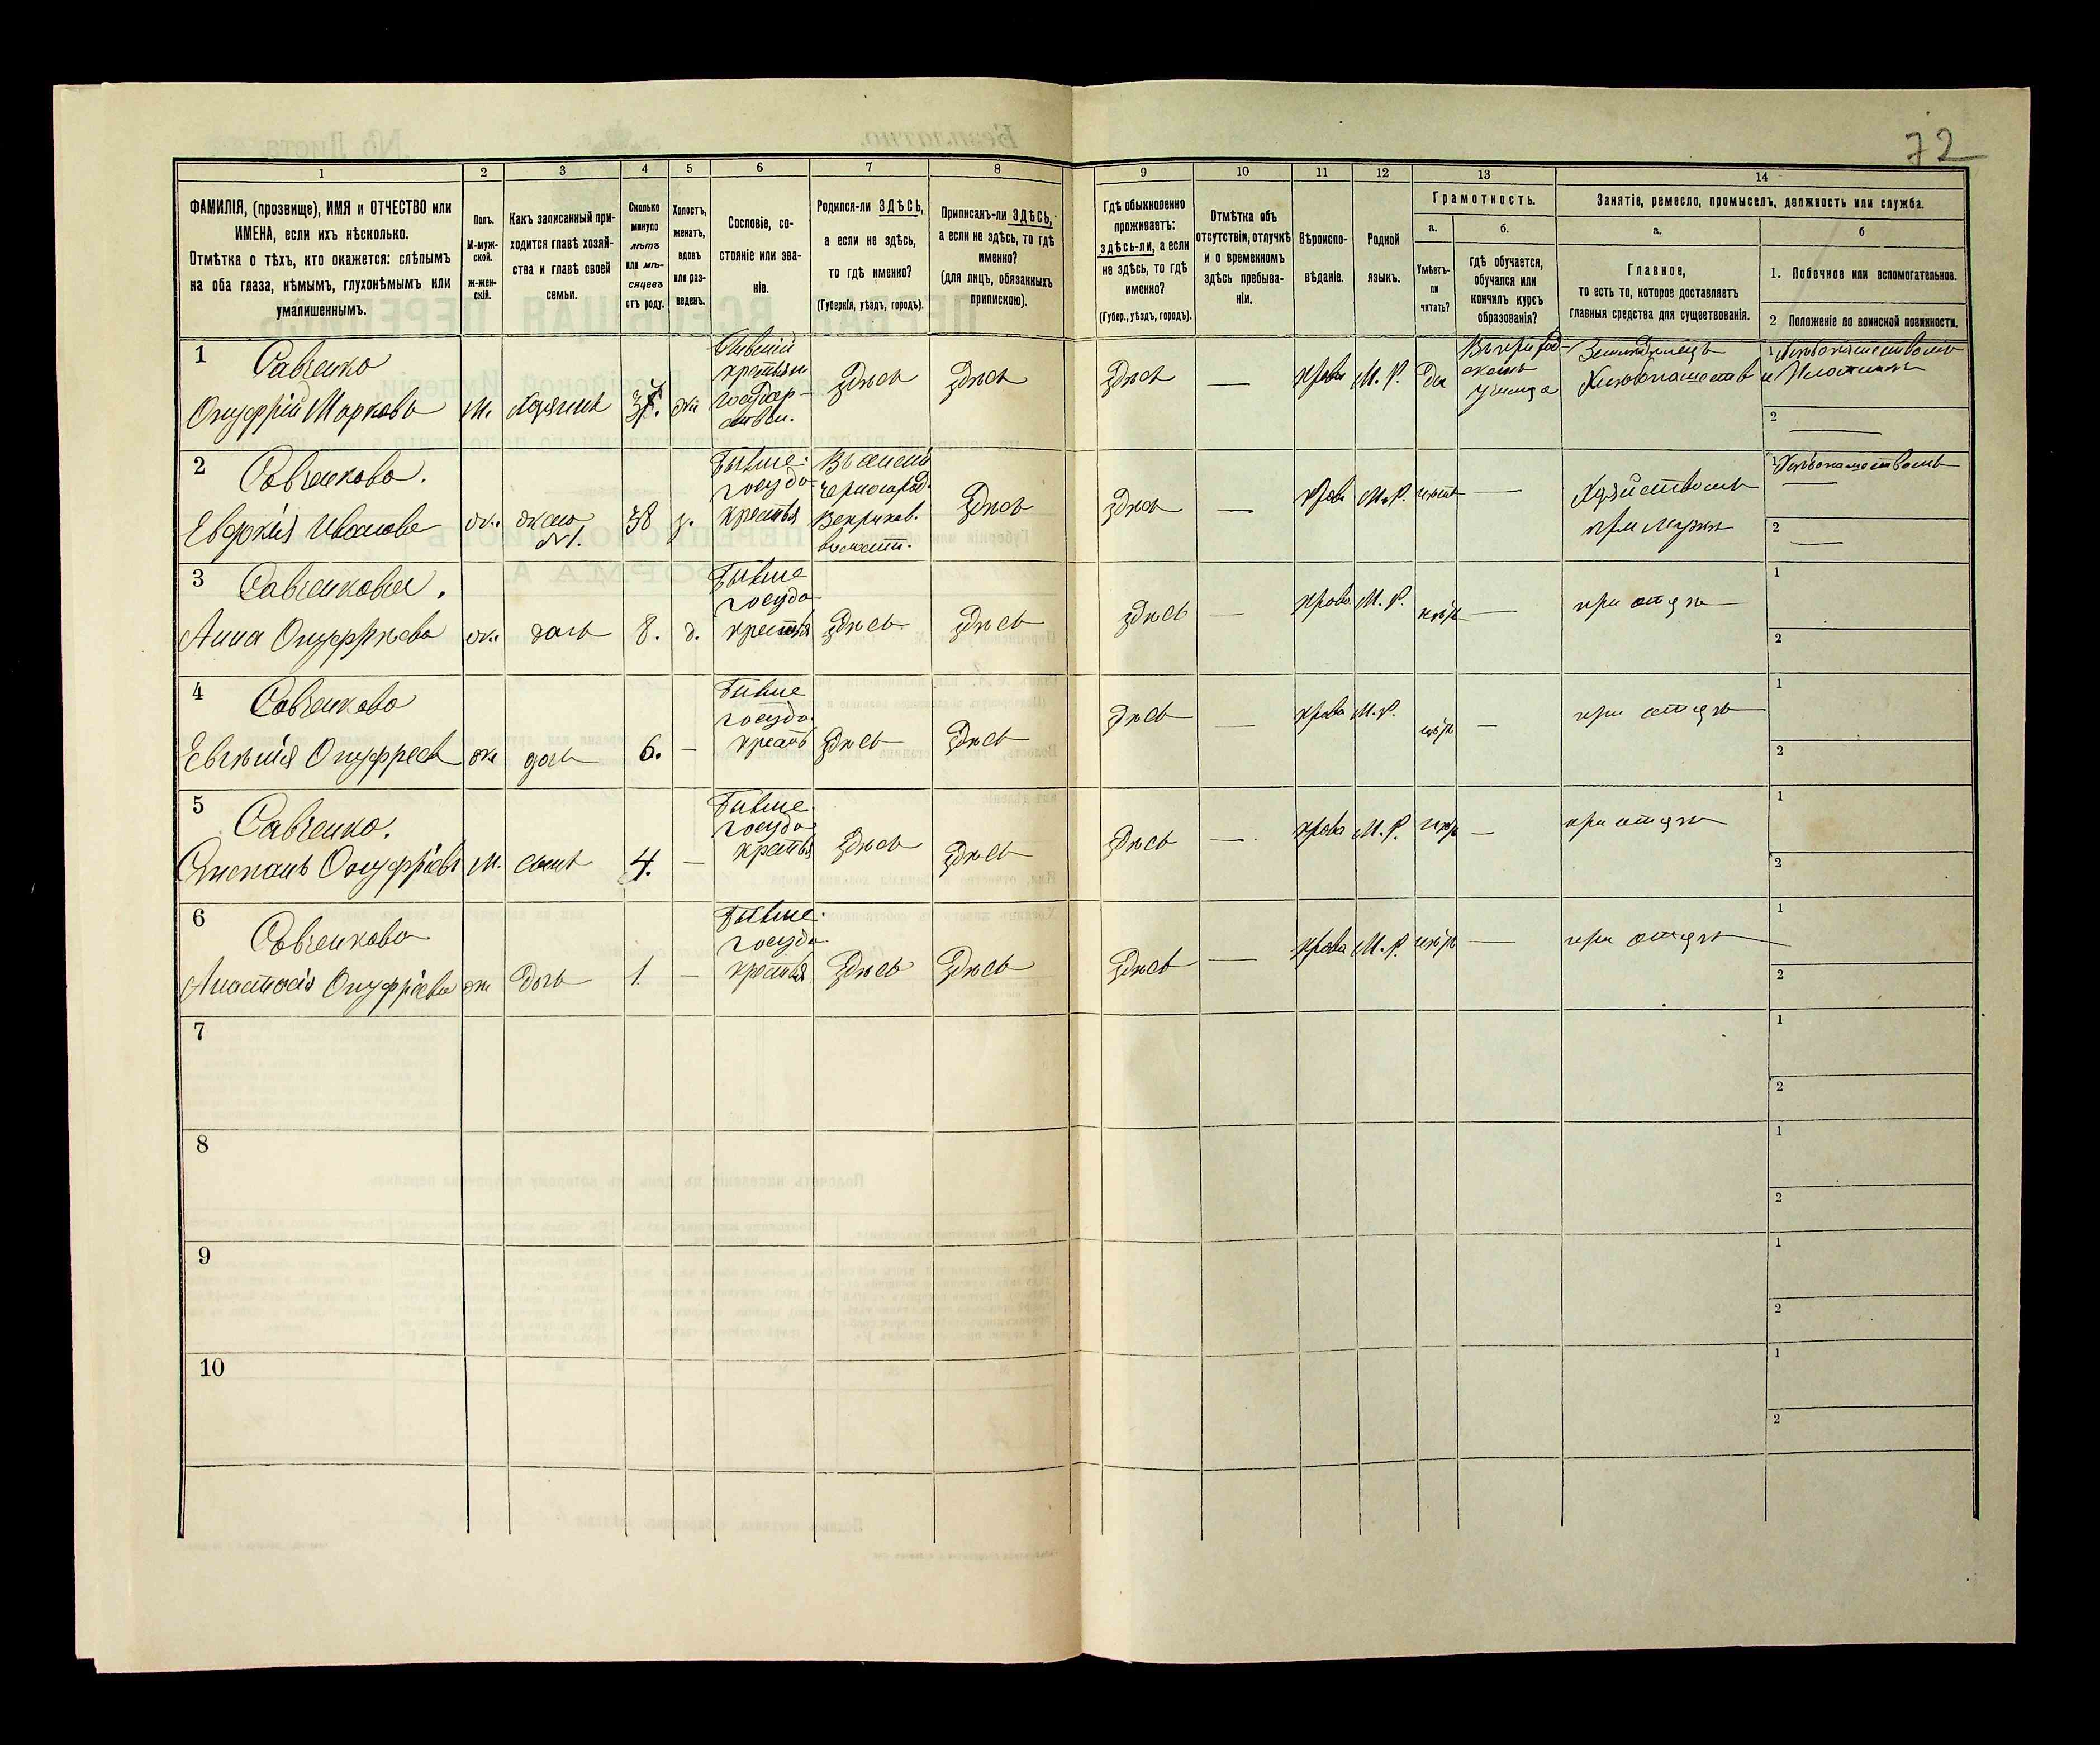 72
1
2
3
4
5
6
7
8
9
10
11
12
13
14
ФАМИЛІЯ, (прозвище), ИМЯ и ОТЧЕСТВО или
ИМЕНА, если ихъ нѣсколько.
Отмѣтка о тѣхъ, кто окажется: слѣпымъ
на оба глаза, нѣмымъ, глухонѣмымъ или
умалишеннымъ.
Полъ.
М-муж-
ской.
ж-жен-
скій.
Какъ записанный при-
ходится главѣ хозяй-
ства и главѣ своей
семьи.
Сколько
минуло
лѣтъ
или мѣ-
сяцевъ
отъ роду.
Холостъ,
женатъ,
вдовъ
или раз-
веденъ.
Сословіе, со-
стояніе или зва-
ніе.
Родился-ли ЗДѢСЬ,
а если не здѣсь,
то гдѣ именно?
(Губернія, уѣздъ, городъ).
Приписанъ-ли ЗДѢСЬ,
а если не здѣсь, то гдѣ
именно?
(для лицъ, обязанныхъ
припискою).
Гдѣ обыкновенно
проживаетъ:
здѣсь-ли, а если
не здѣсь, то гдѣ
именно?
(Губер., уѣздъ, городъ).
Отмѣтка объ
отсутствіи, отлучкѣ
и о временномъ
здѣсь пребыва-
ніи.
Вѣроиспо-
вѣданіе.
Родной
языкъ.
Грамотность.
а.
б.
Умѣетъ-
ли
читать?
гдѣ обучается,
обучался или
кончилъ курсъ
образованія?
Занятіе, ремесло, промыселъ, должность или служба.
а.
б
Главное,
то есть то, которое доставляетъ
главныя средства для существованія.
1. Побочное или вспомогательное.
2 Положеніе по воинской повинности.
1 Савченко
Онуфрій Маркова м. хозяинъ 37. же
Бывшій
крестьян
Государ-
ствен.
здѣсь здѣсь здѣсь — права М. Р. да
училща
Земледѣлецъ
1
2
2 Савченкова.
Евдокія Иванова ж. жена №1. 38 з.
Бывше.
госуда
крестья
волости.
здѣсь здѣсь — права М. Р. —
Хозяйствомъ
при мужѣ
1
2
3 Савченкова.
Анна Онуфріева ж. дочь 8. д.
Бывше
госуда
крестья
здѣсь здѣсь здѣсь — права М. Р. — при отцѣ
1
2
4 Савченкова
Евгенія Онуфріев же дочь 6. —
Бывше
госуда
крестья
здѣсь здѣсь здѣсь — права М. Р. — при отцѣ
1
2
5 Савченко.
Степанъ Онуфріевъ М. сынъ 4. —
Бывше.
госуда
крестья
здѣсь здѣсь здѣсь — права М. Р. — при отцѣ
1
2
6 Савченкова
Анастасія Онуфріева же Дочь 1. —
Бывше.
госуда
крестья
здѣсь здѣсь здѣсь — права М. Р. — при отцѣ
1
2
7
1
2
8
1
2
9
1
2
10
1
2